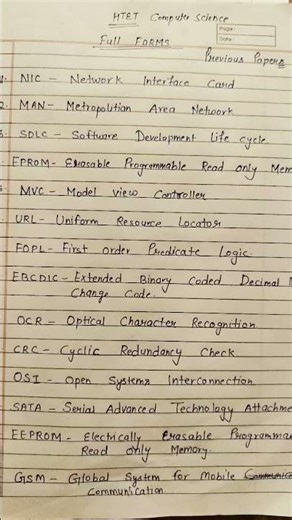 HTET Computer Science
Page:
Date:
Full Forms
Previous Papers
1. NIC - Network Interface Card
2. MAN - Metropolitian Area Network
3. SDLC - Software Development Life cycle
EPROM - Erasable Programmable Read only Mem
MVC - Model view Controller
URL - Uniform Resource Locator
FOPL - First order Predicate Logic
EBCDIC - Extended Binary Coded Decimal
Change Code
OCR - Optical Character Recognition
CRC - Cyclic Redundancy Check
OSI - Open Systems Interconnection
SATA - Serial Advanced Technology Attachme
EEPROM - Electrically Erasable Programma
Read only Memory
GSM - Global System for Mobile
Communication